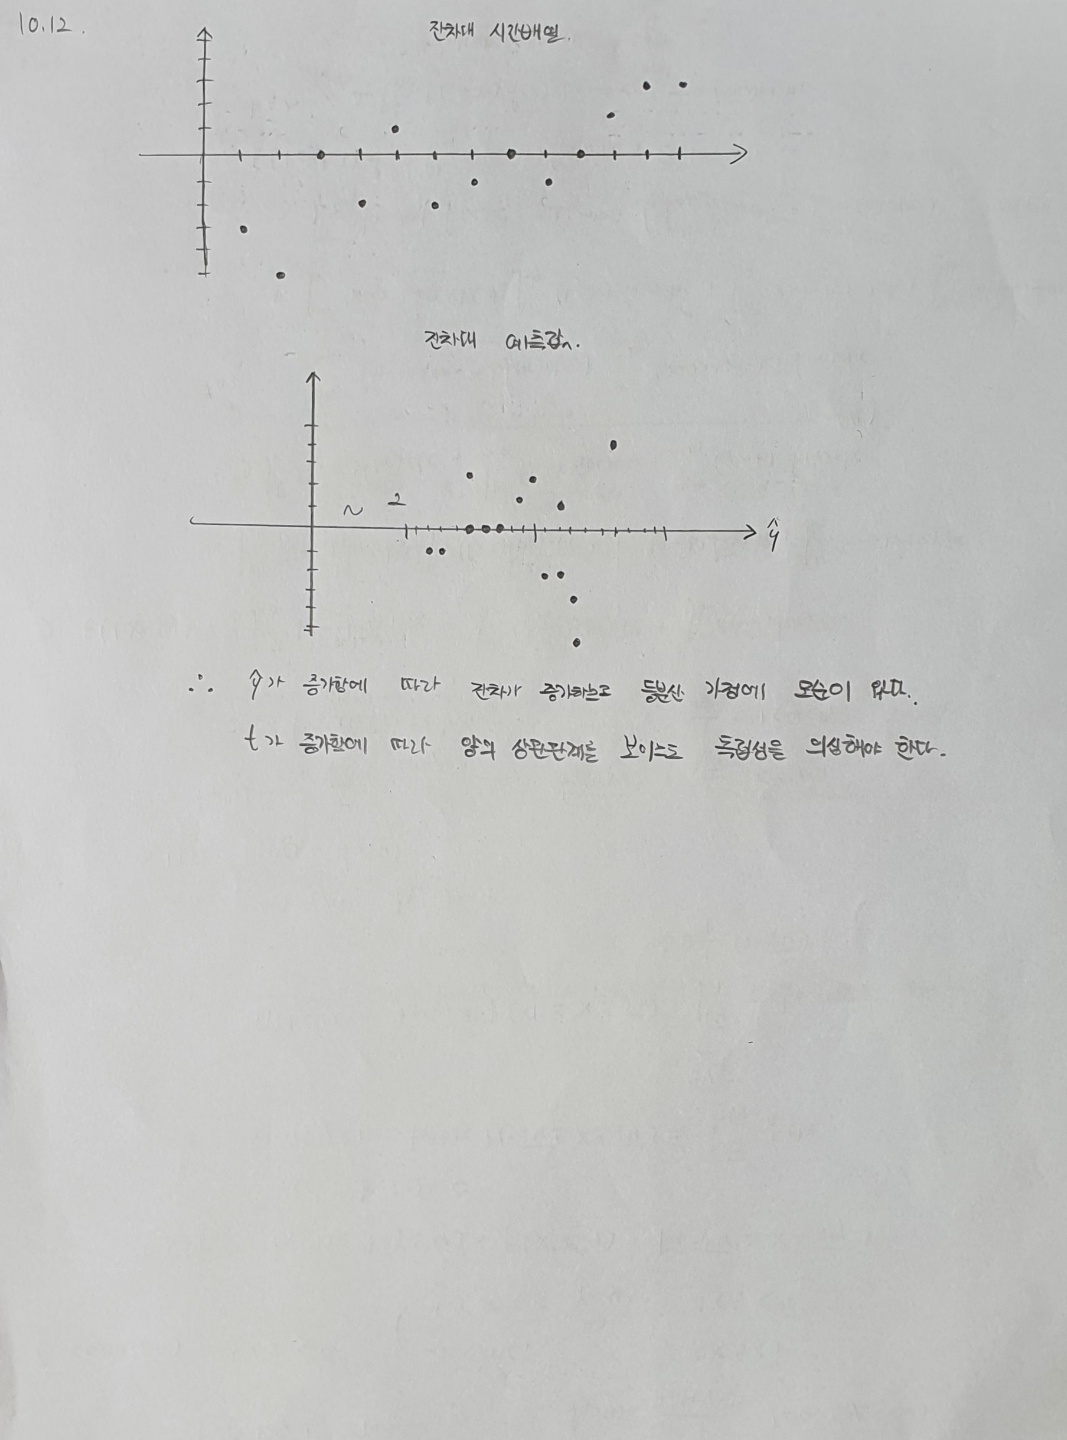 10.12.
잔차대 시간배열.
잔차대 예측값.
~ 2
ŷ
∴ ŷ가 증가함에 따라 잔차가 증가하므로 등분산 가정에 모순이 있다.
t가 증가함에 따라 양의 상관관계를 보이므로 독립성을 의심해야 한다.